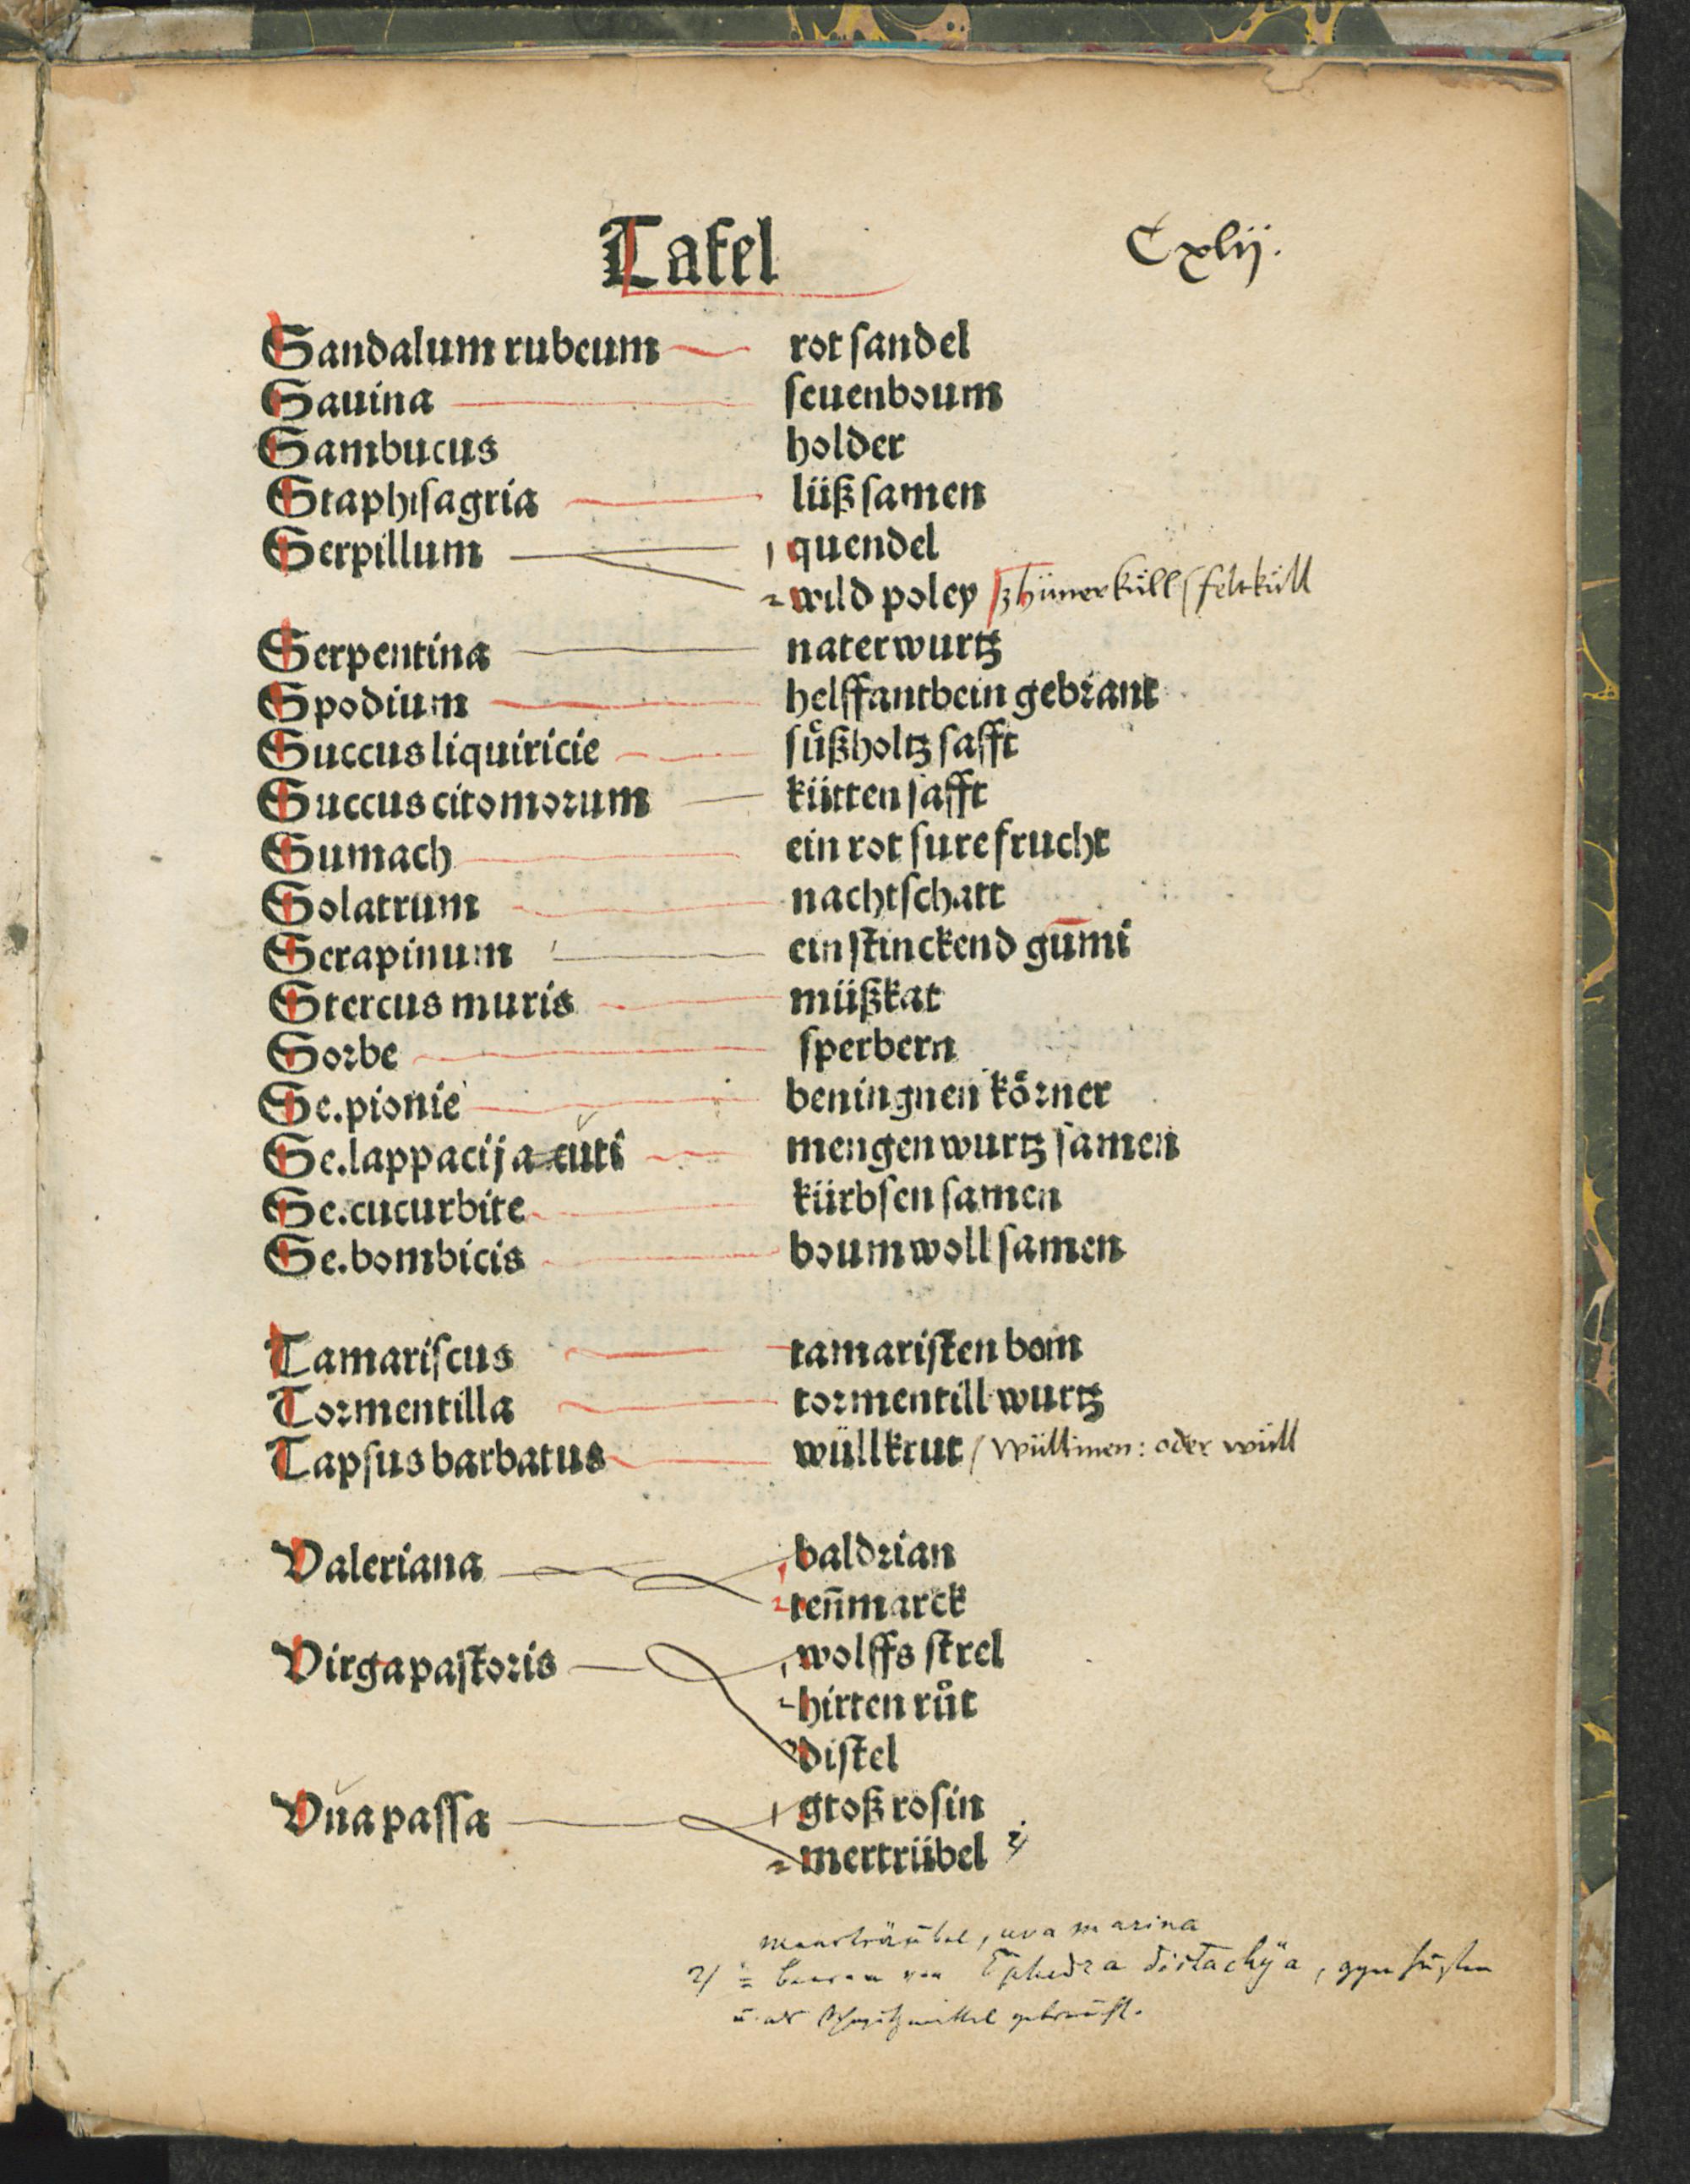 Tafel Cxlij.
Sandalum rubeum rot sandel
Sauina seuenboum
Sambucus holder
Staphisagria lüßsamen
Serpillum 1 quendel
2 wild poley / 3 hünerküll / feltküll
Serpentina naterwurtz
Spodium helffantbein gebrant
Succus liquiricie süßholtz safft
Succus citomorum kütten safft
Sumach ein rot sure frucht
Solatrum nachtschatt
Serapinum ein stinckend gūmi
Stercus muris müßkat
Sorbe sperbern
Se.pionie beningnen körner
Se.lappacij acuti mengenwurtz samen
Se.cucurbite kürbsen samen
Se.bombicis boumwoll samen
Tamariscus tamaristen bom
Tormentilla tormentill wurtz
Tapsus barbatus wüllkrut / wüllinen: oder wüll
Valeriana 1 baldrian
2 teñmarck
Virga pastoris 1 wolffs strel
2 hirten růt
3 distel
Vua passa 1 groß rosin
2 mertrübel 2)
Meerträubel, uva marina
2) = Beeren von Ephedra distachya, gegen
u. als gebraucht.